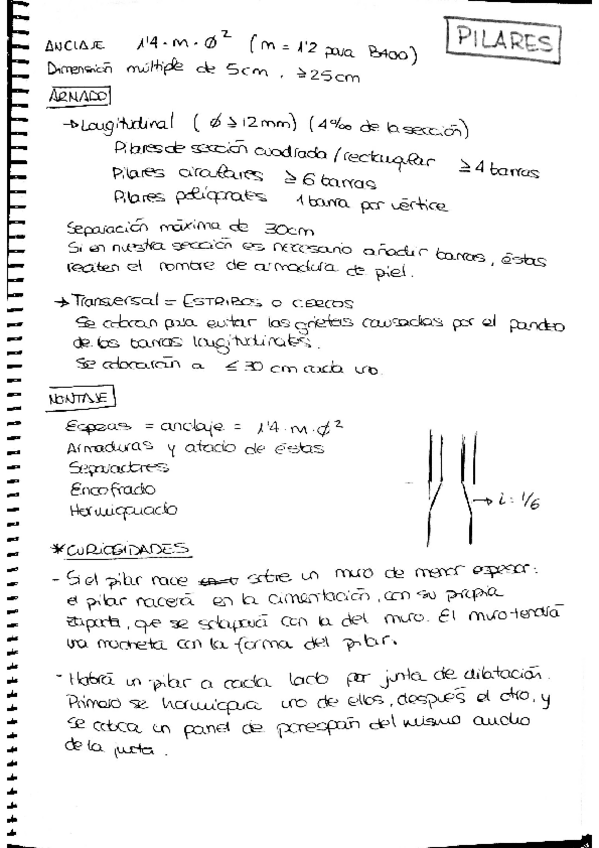 PILARES
ANCLAJE 1'4 · m · ϕ² (m = 1'2 para B400)
Dimensión múltiple de 5cm, ≥25cm
ARMADO
→ Longitudinal (ϕ ≥ 12mm) (4‰ de la sección)
Pilares de sección cuadrada / rectangular ≥ 4 barras
Pilares circulares ≥ 6 barras
Pilares poligonales 1 barra por vértice
Separación máxima de 30cm
Si en nuestra sección es necesario añadir barras, éstas
reciben el nombre de armadura de piel.
→ Transversal = ESTRIBOS O CERCOS
Se colocan para evitar las grietas causadas por el pandeo
de las barras longitudinales.
Se colocarán a ≤ 30 cm cada uno.
MONTAJE
Esperas = anclaje = 1'4 · m · ϕ²
Armaduras y atado de éstas
Separadores
Encofrado
Hormigonado
→ i = 1/6
* CURIOSIDADES
- Si el pilar nace sobre un muro de menor espesor:
el pilar nacerá en la cimentación, con su propia
zapata, que se solapará con la del muro. El muro tendrá
una mocheta con la forma del pilar.
- Habrá un pilar a cada lado por junta de dilatación.
Primero se hormigona uno de ellos, después el otro, y
se coloca un panel de porespán del mismo ancho
de la junta.